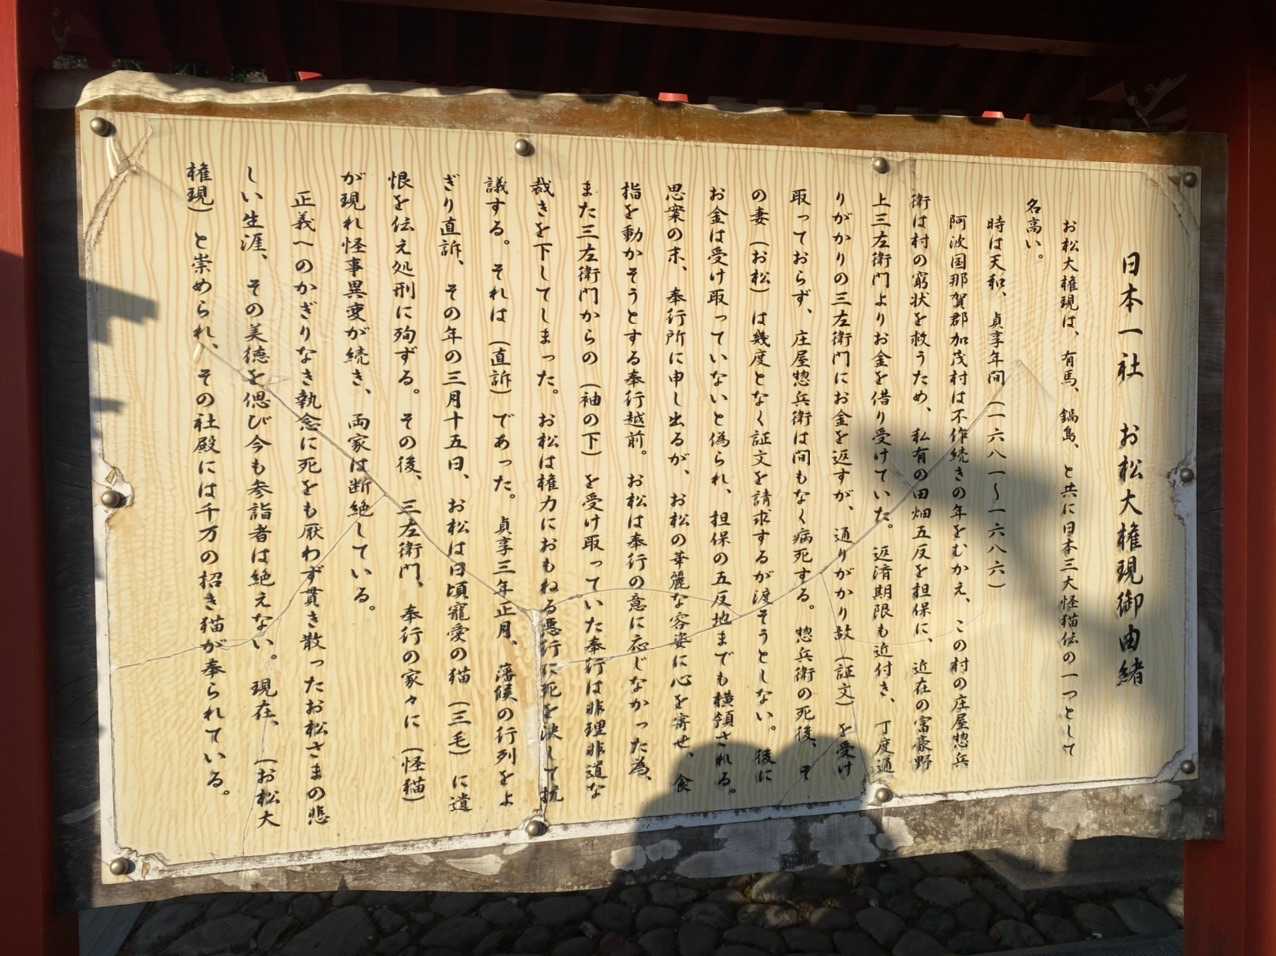 日本一社 お松大権現御由緒
お松大権現は、有馬、鍋島、と共に日本三大怪猫伝の一つとして
名高い。
時は天和、貞享年間（一六八一～一六八六）
阿波国那賀郡加茂村は不作続きの年をむかえ、この村の庄屋惣兵
衛は村の窮状を救うため、私有の田畑五反を担保に、近在の富豪野
上三左衛門よりお金を借り受けていた。返済期限も近付き、丁度通
りがかりの三左衛門にお金を返すが、通りがかり故（証文）を受け
取っておらず、庄屋惣兵衛は間もなく病死する。惣兵衛の死後、そ
の妻（お松）は幾度となく証文を請求するが渡そうとしない。後に
お金は受け取っていないと偽られ、担保の五反地までも横領される。
思案の末、奉行所に申し出るが、お松の華麗な容姿に心を寄せ、食
指を動かそうとする奉行越前。お松は奉行の意に応じなかった為、
また三左衛門からの（袖の下）を受け取っていた奉行は非理非道な
裁きを下してしまった。お松は権力におもねる悪行に死を決して抗
議する。それは（直訴）であった。貞享三年正月、藩侯の行列をよ
ぎり直訴、その年の三月十五日、お松は日頃寵愛の猫（三毛）に遺
恨を伝え処刑に殉ずる。その後、三左衛門、奉行の家々に（怪猫）
が現れ怪事異変が続き、両家は断絶している。
正義へのかぎりなき執念に死をも厭わず貫き散ったお松さまの悲
しい生涯、その美徳を偲び今も参詣者は絶えない。現在、（お松大
権現）と崇められ、その社殿には千万の招き猫が奉られている。